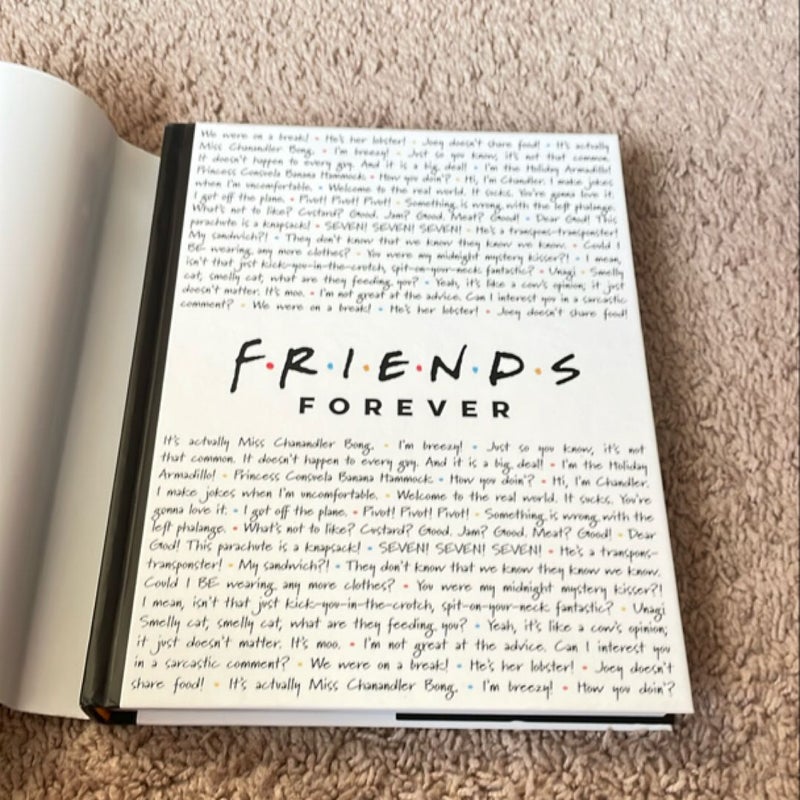 We were on a break! • He's her lobster! • Joey doesn't share food! • It's actually
Miss Chanandler Bong. • I'm breezy! • Just so you know, it's not that common.
It doesn't happen to every guy. And it is a big deal! • I'm the Holiday Armadillo!
Princess Consuela Banana Hammock • How you doin'? • Hi, I'm Chandler. I make jokes
when I'm uncomfortable. • Welcome to the real world. It sucks. You're gonna love it.
I got off the plane. • Pivot! Pivot! Pivot! • Something is wrong with the left phalange.
What's not to like? Custard? Good. Jam? Good. Meat? Good! • Dear God! This
parachute is a knapsack! • SEVEN! SEVEN! SEVEN! • He's a transpons-transponster!
My sandwich?! • They don't know that we know they know we know. • Could I
BE wearing any more clothes? • You were my midnight mystery kisser?! • I mean,
isn't that just kick-you-in-the-crotch, spit-on-your-neck fantastic? • Unagi • Smelly
cat, smelly cat, what are they feeding you? • Yeah, it's like a cow's opinion; it just
doesn't matter. It's moo. • I'm not great at the advice. Can I interest you in a sarcastic
comment? • We were on a break! • He's her lobster! • Joey doesn't share food!
F•R•I•E•N•D•S
FOREVER
It's actually Miss Chanandler Bong. • I'm breezy! • Just so you know, it's not
that common. It doesn't happen to every guy. And it is a big deal! • I'm the Holiday
Armadillo! • Princess Consuela Banana Hammock • How you doin'? • Hi, I'm Chandler.
I make jokes when I'm uncomfortable. • Welcome to the real world. It sucks. You're
gonna love it. • I got off the plane. • Pivot! Pivot! Pivot! • Something is wrong with the
left phalange. • What's not to like? Custard? Good. Jam? Good. Meat? Good! • Dear
God! This parachute is a knapsack! • SEVEN! SEVEN! SEVEN! • He's a transpons-
transponster! • My sandwich?! • They don't know that we know they know we know.
Could I BE wearing any more clothes? • You were my midnight mystery kisser?!
I mean, isn't that just kick-you-in-the-crotch, spit-on-your-neck fantastic? • Unagi
Smelly cat, smelly cat, what are they feeding you? • Yeah, it's like a cow's opinion;
it just doesn't matter. It's moo. • I'm not great at the advice. Can I interest you
in a sarcastic comment? • We were on a break! • He's her lobster! • Joey doesn't
share food! • It's actually Miss Chanandler Bong. • I'm breezy! • How you doin'?